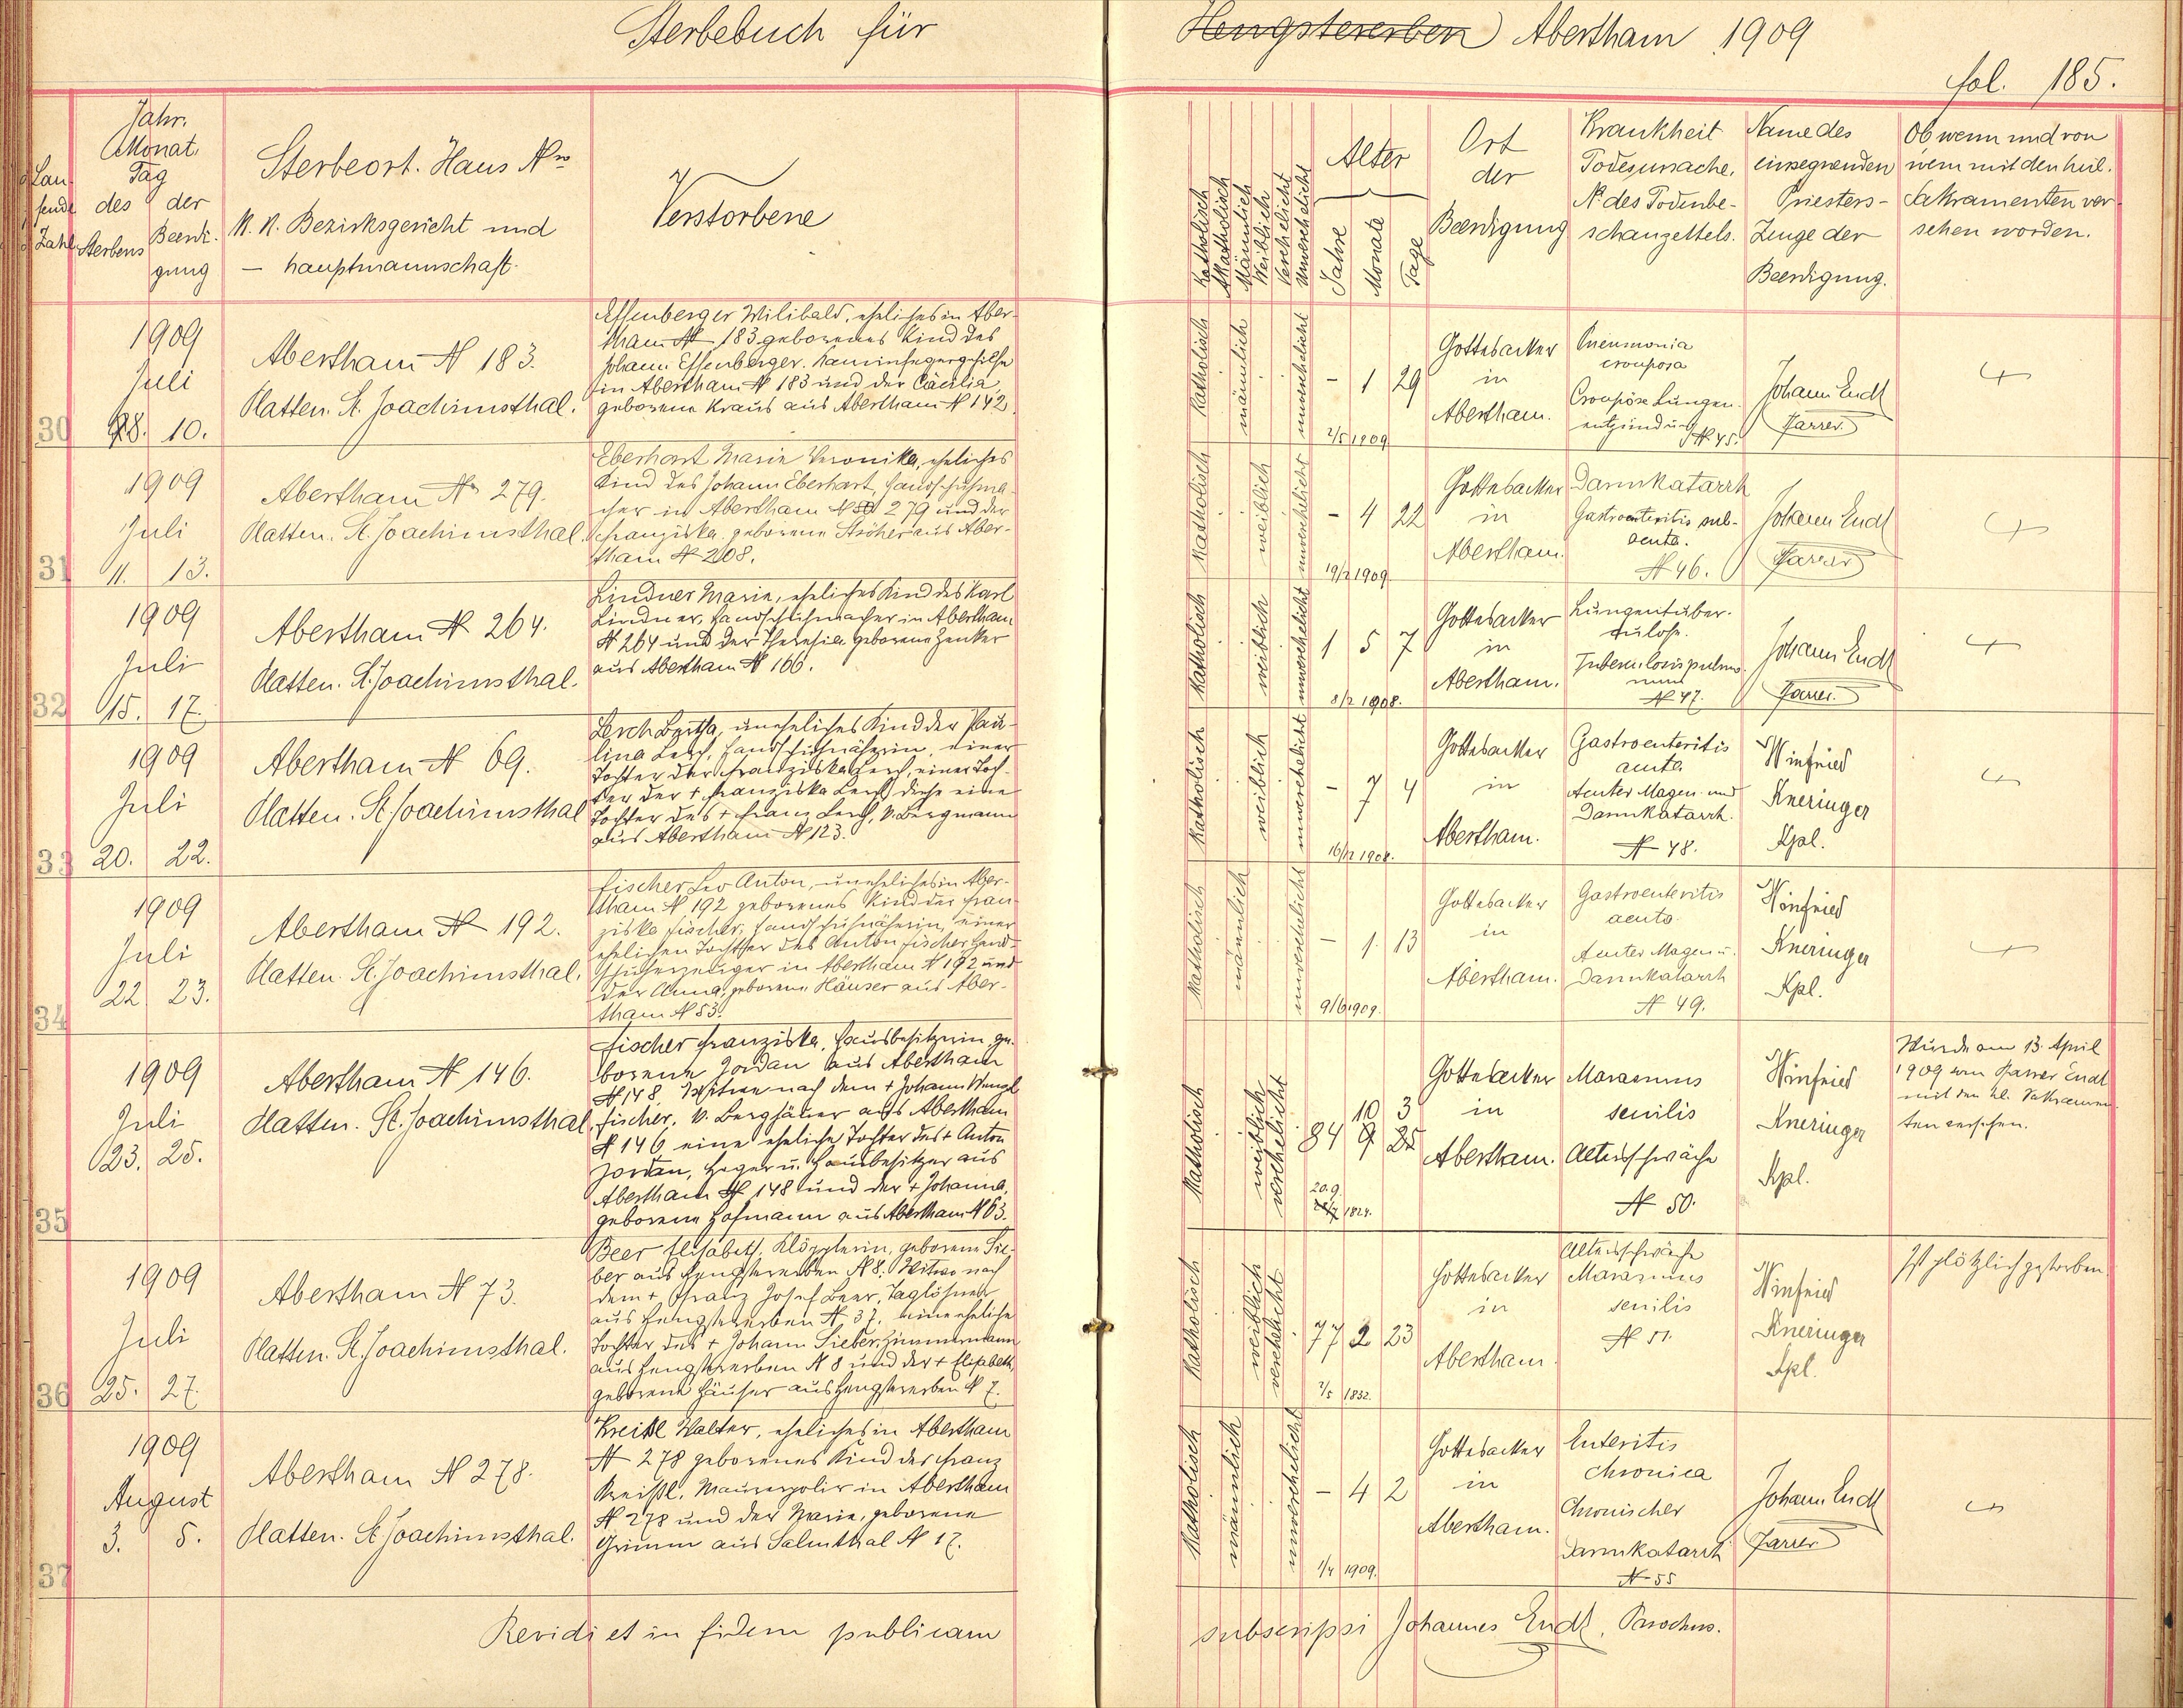 Sterbebuch für
Hengstererben Abertham 1909
fol. 185.
Lau-
fende
Zahl
Jahr.
Monat.
Tag
des der
Sterbens Beerdi-
gung
Sterbeort. Haus Nro
K. K. Bezirksgericht und
— hauptmannschaft.
Verstorbene
Katholisch
Akatholisch
Männlich
Weiblich
Verehelicht
Unverehelicht
Alter
Jahre
Monate
Tage
Ort
der
Beerdigung
Krankheit
Todesursache.
N. des Todenbe-
schauzettels.
Name des
einsegnenden
Priesters-
Zeuge der
Beerdigung.
Ob wenn und von
wem mit den heil.
Sakramenten ver-
sehen worden.
30
1909
Juli
8. 10.
Abertham N 183.
Platten. St. Joachimsthal.
Effenberger Wilibald, eheliches in Aber-
tham N 183 geborenes Kind des
Johann Effenberger, Kaminfegergehilfe
in Abertham N 183 und der Cäcilia,
geborene Kraus aus Abertham N 142.
Katholisch
männlich
unverehelicht
- 1 29
2/5 1909
Gottesacker
in
Abertham.
Pneumonia
crouposa
Croupöse Lungen-
entzündung
N. 45.
Johann Endt
Pfarrer
+
31
1909
Juli
11. 13.
Abertham No 279.
Platten. St. Joachimsthal.
Eberhart Marie Veronika, eheliches
Kind des Johann Eberhart, Handschuhma-
cher in Abertham N 279 und der
Franziska geborene Ströher aus Aber-
tham N 208.
Katholisch
weiblich
unverehelicht
- 4 22
19/2 1909
Gottesacker
in
Abertham.
Darmkatarrh
Gastroenteritis sub-
acuta.
N 46.
Johann Endt
Pfarrer
+
32
1909
Juli
15. 17.
Abertham N 264.
Platten. St. Joachimsthal.
Lindner Marie, eheliches Kind des Karl
Lindner, Handschuhmacher in Abertham
N 264 und der Theresia geborene Zenker
aus Abertham N 166.
Katholisch
weiblich
unverehelicht
1 5 7
8/2 1908.
Gottesacker
in
Abertham.
Lungentuber-
kulose.
Tuberculosis pulmo-
num
N 47.
Johann Endt
Pfarrer.
+
33
1909
Juli
20. 22.
Abertham N 69.
Platten. St. Joachimsthal
Lerch Bertha, uneheliches Kind der Pau-
lina Lerch, Handschuhnäherin, einer
Tochter der Franziska Lerch, einer Toch-
ter der + Franziska Lerch diese eine
Tochter des + Franz Lerch, k. Bergmann
aus Abertham N 123.
Katholisch
weiblich
unverehelicht
- 7 4
16/12 1908.
Gottesacker
in
Abertham.
Gastroenteritis
acuta.
Acuter Magen- und
Darmkatarrh.
N 48.
Winfried
Kneringer
Kpl.
+
34
1909
Juli
22. 23.
Abertham N 192.
Platten. St. Joachimsthal.
Fischer Leo Anton, uneheliches in Aber-
tham N 192 geborenes Kind der Fran-
ziska Fischer, Handschuhnäherin, einer
ehelichen Tochter des Anton Fischer Hand-
schuherzeuger in Abertham N 192 und
der Anna, geborene Häuser aus Aber-
tham N 53.
Katholisch
männlich
unverehelicht
- 1 13
9/6 1909.
Gottesacker
in
Abertham.
Gastroenteritis
acuta
Acuter Magen u.
Darmkatarrh
N 49.
Winfried
Kneringer
Kpl.
+
35
1909
Juli
23. 25.
Abertham N 146.
Platten. St. Joachimsthal
Fischer Franziska, Hausbesitzerin, ge-
borene Jordan aus Abertham
N 148, Witwe nach dem + Johann Wenzl
Fischer, k. Berghäuer aus Abertham
N 146 eine eheliche Tochter des + Anton
Jordan, Heger u. Hausbesitzer aus
Abertham N 148 und der + Johanna,
geborene Hofmann aus Abertham N 63.
Katholisch
weiblich
verehelicht
10 3
84 9 25
20.9.
1824.
Gottesacker
in
Abertham.
Marasmus
senilis
Altersschwäche
N 50.
Winfried
Kneringer
Kpl.
Wurde am 13. April
1909 vom Pfarrer Endt
mit den hl. Sakramen-
ten versehen.
36
1909
Juli
25. 27.
Abertham N 73.
Platten. St. Joachimsthal.
Beer Elisabeth, Klöpplerin, geborene Sie-
ber aus Hengstererben N 8. Witwe nach
dem + Franz Josef Beer, Taglöhner
aus Hengstererben N 37, eine eheliche
Tochter des + Johann Sieber, Zimmermann
aus Hengstererben N 8 und der + Elisabeth,
geborene Häuser aus Hengstererben N 7.
Katholisch
weiblich
verehelicht
77 2 23
2/5 1832.
Gottesacker
in
Abertham
Altersschwäche
Marasmus
senilis
N 51.
Winfried
Kneringer
Kpl.
Ist plötzlich gestorben.
37
1909
August
3. 5.
Abertham N 278.
Platten. St. Joachimsthal.
Kreißl Walter, eheliches in Abertham
N 278 geborenes Kind des Franz
Kreißl, Maurerpolier in Abertham
N 278 und der Marie, geborene
Grimm aus Salmthal N 17.
Katholisch
männlich
unverehelicht
- 4 2
1/4 1909.
Gottesacker
in
Abertham.
Enteritis
chronica
Chronischer
Darmkatarrh
N 55
Johann Endt
Pfarrer
+
Revidi et in fidem publicam
subscripsi Johannes Endt, Parochus.